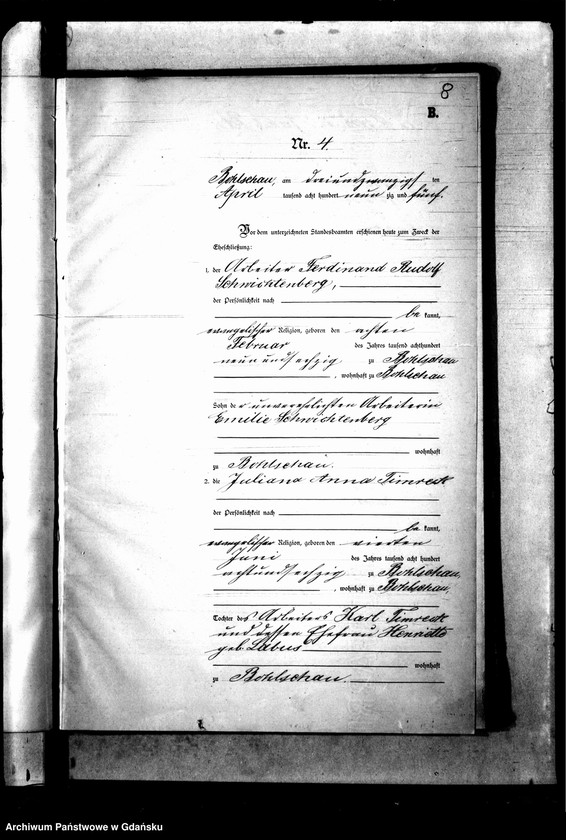 8
B.
Nr. 4
Bohlschau, am dreiundzwanzigsten
April tausend acht hundert neunzig und fünf.
Vor dem unterzeichneten Standesbeamten erschienen heute zum Zweck der
Eheschließung:
1. der Arbeiter Ferdinand Rudolf
Schwichtenberg,
der Persönlichkeit nach
be kannt,
evangelischer Religion, geboren den achten
Februar des Jahres tausend achthundert
neunundsechzig zu Bohlschau
, wohnhaft zu Bohlschau
Sohn der unverehelichten Arbeiterin
Emilie Schwichtenberg
wohnhaft
zu Bohlschau.
2. die Juliana Anna Timreck
der Persönlichkeit nach
be kannt,
evangelischer Religion, geboren den vierten
Juni des Jahres tausend acht hundert
achtundsechzig zu Bohlschau,
, wohnhaft zu Bohlschau,
Tochter des Arbeiters Karl Timreck
und dessen Ehefrau Henriette
geb. Labus
wohnhaft
zu Bohlschau.
Archiwum Państwowe w Gdańsku